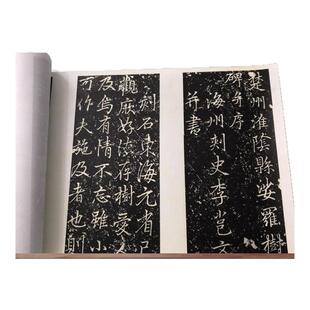 楚州淮陰縣娑羅樹
碑并序
海州刺史李邕文
并書
刻石東海元省已
觀厥好深存樹愛人
及烏有情不忘雖小
可作大施及者也則